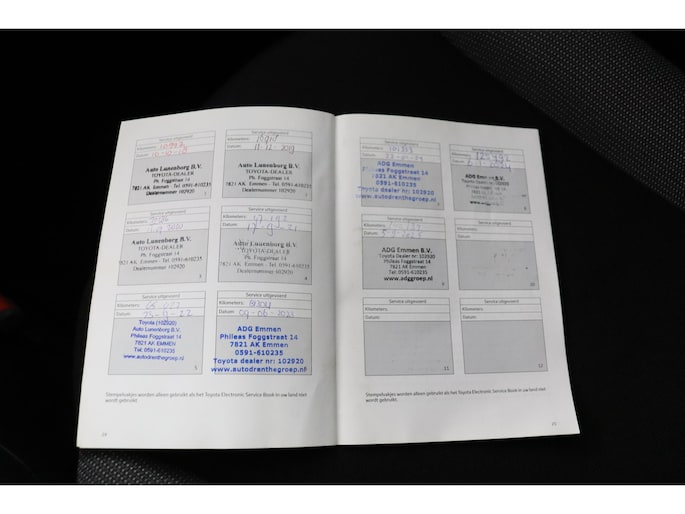 Service uitgevoerd
Kilometers:
Datum:
Auto Lunenborg B.V.
TOYOTA-DEALER
Ph. Foggstraat 14
7821 AK Emmen - Tel. 0591-610235
Dealernummer 102920
1
Service uitgevoerd
Kilometers:
Datum: 11-12-2019
Auto Lunenborg B.V.
TOYOTA-DEALER
Ph. Foggstraat 14
7821 AK Emmen - Tel. 0591-610235
Dealernummer 102920
2
Service uitgevoerd
Kilometers:
Datum:
Auto Lunenborg B.V.
TOYOTA-DEALER
Ph. Foggstraat 14
7821 AK Emmen - Tel. 0591-610235
Dealernummer 102920
3
Service uitgevoerd
Kilometers:
Datum:
Auto Lunenborg B.V.
TOYOTA-DEALER
Ph. Foggstraat 14
7821 AK Emmen - Tel. 0591-610235
Dealernummer 102920
4
Service uitgevoerd
Kilometers:
Datum: 23-9-22
Toyota (102920)
Auto Lunenborg B.V.
Phileas Foggstraat 14
7821 AK EMMEN
Tel: 0591-610235
5
Service uitgevoerd
Kilometers:
Datum: 09-06-2023
ADG Emmen
Phileas Foggstraat 14
7821 AK Emmen
0591-610235
Toyota dealer nr: 102920
www.autodrenthegroep.nl
Stempelvakjes worden alleen gebruikt als het Toyota Electronic Service Book in uw land niet
wordt gebruikt.
24
Service uitgevoerd
Kilometers:
Datum:
ADG Emmen
Phileas Foggstraat 14
7821 AK Emmen
0591-610235
Toyota dealer nr: 102920
www.autodrenthegroep.nl
Service uitgevoerd
Kilometers:
Datum:
ADG Emmen B.V.
Service uitgevoerd
Kilometers:
Datum:
ADG Emmen B.V.
Phileas Foggstraat 14
7821 AK Emmen
Tel. 0591-610235
Dealernummer 102920
www.adggroep.nl
9
Service uitgevoerd
Kilometers:
Datum:
10
Service uitgevoerd
Kilometers:
Datum:
11
Service uitgevoerd
Kilometers:
Datum:
12
Stempelvakjes worden alleen gebruikt als het Toyota Electronic Service Book in uw land niet
wordt gebruikt.
25